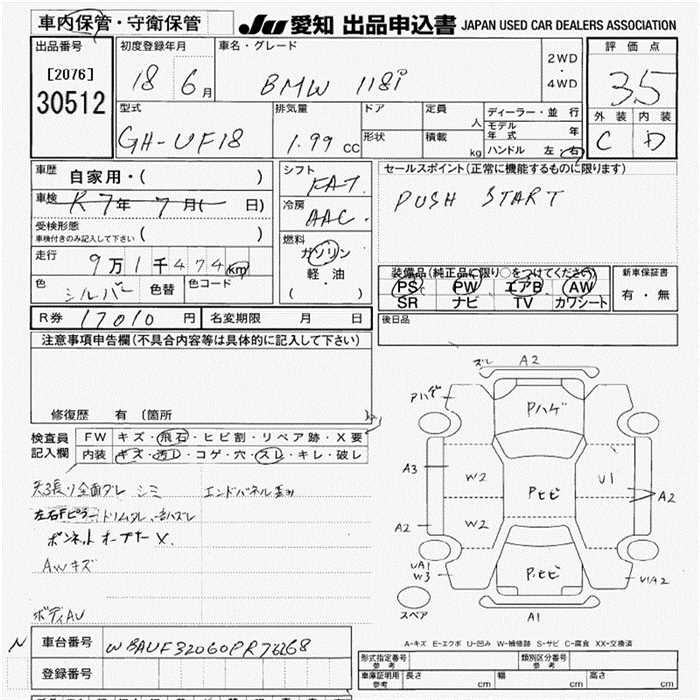 車内保管・守衛保管
JU 愛知 出品申込書 JAPAN USED CAR DEALERS ASSOCIATION
出品番号
[2076]
30512
初度登録年月
18 6月
車名・グレード
BMW 118i
2WD
・
4WD
評価点
3.5
外装 内装
C D
型式
GH-UF18
排気量
1.99 CC
ドア
形状
定員
人
積載
kg
ディーラー・並行
モデル年式 年
ハンドル 左・右
車歴
自家用・( )
車検
R7年 7月( 日)
受検形態
車検付きのみ記入して下さい ( )
走行
9万1千474km
色
シルバー
色替
色コード
シフト
FAT
冷房
AAC
燃料
ガソリン
軽・油
( ・ )
セールスポイント(正常に機能するものに限ります)
PUSH START
装備品(純正品に限り○をつけてください)
PS PW エアB AW
SR ナビ TV カワシート
新車保証書
有・無
R券 17010 円 名変期限 月 日
後日品
注意事項申告欄(不具合内容等は具体的に記入して下さい)
修復歴 有 〔箇所
検査員
記入欄
FW キズ・飛石・ヒビ割・リペア跡・X要
内装 キズ・汚レ・コゲ・穴・スレ・キレ・破レ
天張り全面ダレ シミ エンドパネル
左右Fピラートリムダレ
ボンネットオープナー X
AWキズ
ボディAU
ズレ A2
Pハゲ
Pハゲ
A3
W2
U1
A2
Pヒビ
A2
W2
UA1
W3
Pヒビ
U1A2
スペア
A1
A-キズ E-エクボ U-凹み W-補修跡 S-サビ C-腐食 XX-交換済
N
車台番号
WBAUF32060PR76268
登録番号
形式指定番号
参考
類別区分番号
参考
車庫証明用
参考
長さ cm 幅 cm 高さ cm